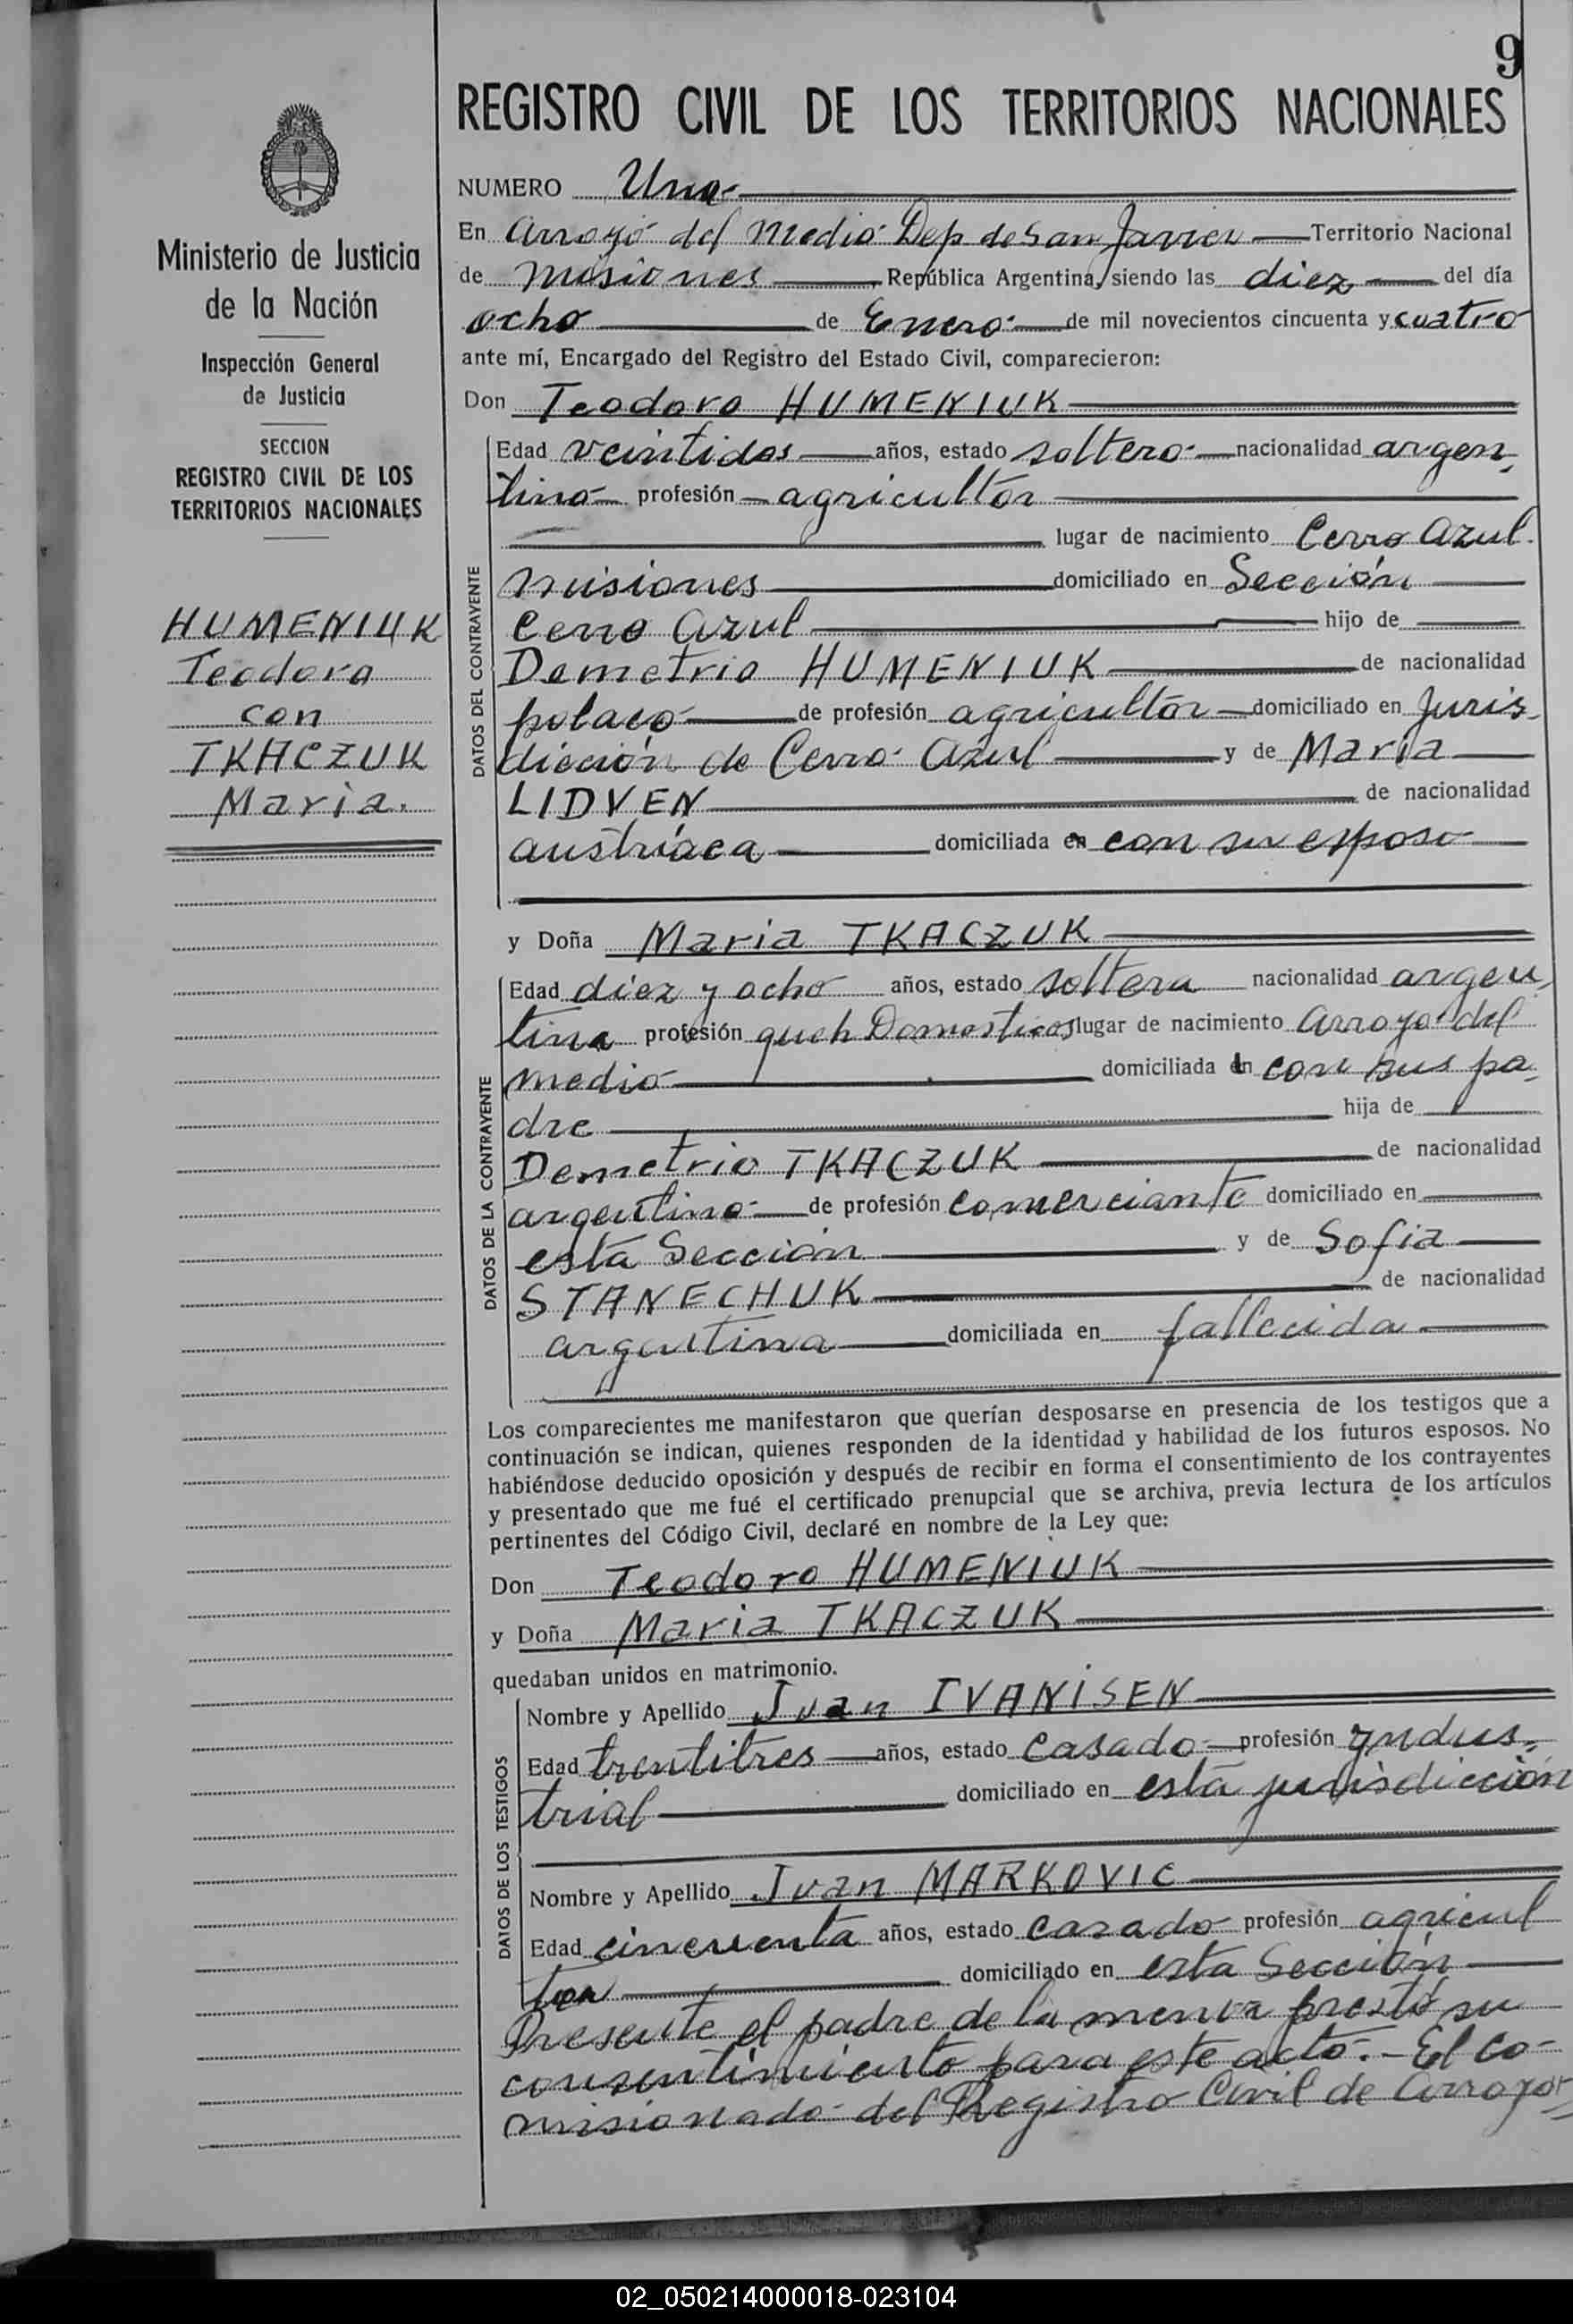 9
REGISTRO CIVIL DE LOS TERRITORIOS NACIONALES
Ministerio de Justicia
de la Nación
Inspección General
de Justicia
SECCION
REGISTRO CIVIL DE LOS
TERRITORIOS NACIONALES
HUMENIUK
Teodoro
con
TKACZUK
Maria.
NUMERO Uno
En Arroyo del Medio Dep de San Javier Territorio Nacional
de Misiones, República Argentina, siendo las diez del día
ocho de Enero de mil novecientos cincuenta y cuatro
ante mí, Encargado del Registro del Estado Civil, comparecieron:
Don Teodoro HUMENIUK
DATOS DEL CONTRAYENTE
Edad veintidos años, estado soltero nacionalidad argen
tino profesión agricultor
lugar de nacimiento Cerro Azul
Misiones domiciliado en Sección
Cerro Azul hijo de
Demetrio HUMENIUK de nacionalidad
polaco de profesión agricultor domiciliado en Juris
dicción de Cerro Azul y de Maria
LIDVEN de nacionalidad
austríaca domiciliada en con su esposo
y Doña Maria TKACZUK
DATOS DE LA CONTRAYENTE
Edad diez y ocho años, estado soltera nacionalidad argen
tina profesión queh Domesticos lugar de nacimiento Arroyo del
medio domiciliada en con sus pa
dre hija de
Demetrio TKACZUK de nacionalidad
argentino de profesión comerciante domiciliado en
esta Sección y de Sofia
STANECHUK de nacionalidad
argentina domiciliada en fallecida
Los comparecientes me manifestaron que querían desposarse en presencia de los testigos que a
continuación se indican, quienes responden de la identidad y habilidad de los futuros esposos. No
habiéndose deducido oposición y después de recibir en forma el consentimiento de los contrayentes
y presentado que me fué el certificado prenupcial que se archiva, previa lectura de los artículos
pertinentes del Código Civil, declaré en nombre de la Ley que:
Don Teodoro HUMENIUK
y Doña Maria TKACZUK
quedaban unidos en matrimonio.
DATOS DE LOS TESTIGOS
Nombre y Apellido Juan IVANISEN
Edad trentitres años, estado casado profesión yndus
trial domiciliado en esta jurisdicción
Nombre y Apellido Juan MARKOVIC
Edad cincuenta años, estado casado profesión agricul
tor domiciliado en esta Sección
Presente el padre de la menor prestó su
consentimiento para este acto.- El Co-
misionado del Registro Civil de Arroyo
02_050214000018-023104